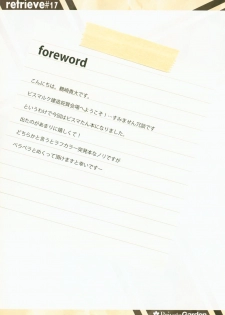 retrieve#17
foreword
こんにちは、鶴崎貴大です。
ビスマルク建造祝賀会場へようこそ！…すみません冗談です
というわけで今回はビスマたん本になりました。
出たのがあまりに嬉しくて！
どちらかと言うとフルカラー突発本なノリですが
ペラペラとめくって頂けますと幸いです…
Private Garden